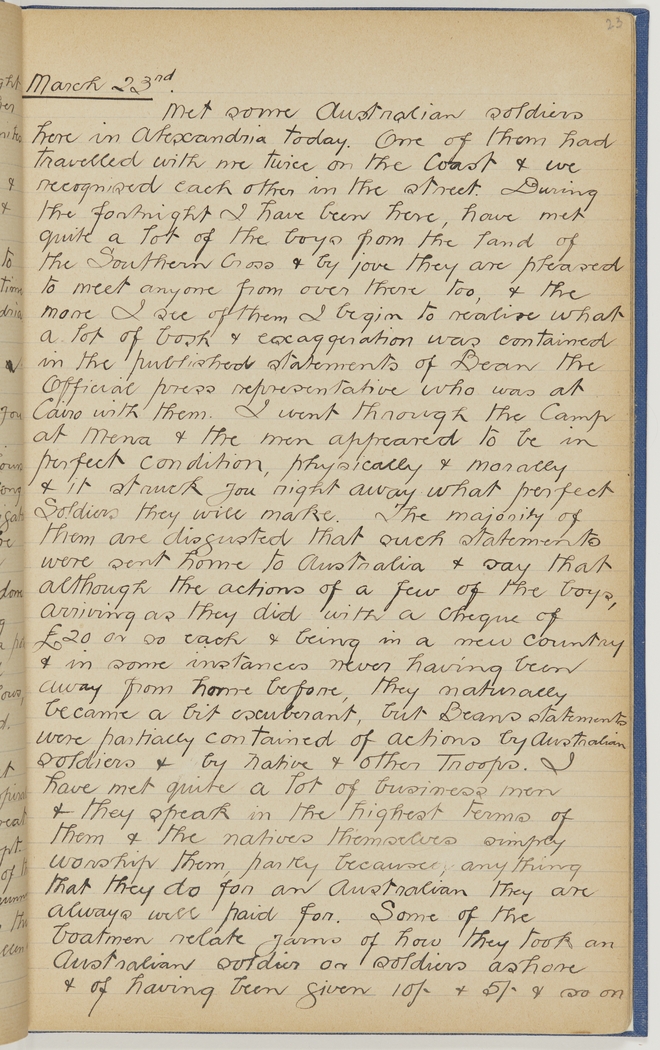 23
March 23rd.
Met some Australian soldiers
here in Alexandria today. One of them had
travelled with me twice on the Coast & we
recognised each other in the street. During
the fortnight I have been here, have met
quite a lot of the boys from the land of
the Southern Cross & by jove they are pleased
to meet anyone from over there too, & the
more I see of them I begin to realise what
a lot of bosh & exaggeration was contained
in the published statements of Bean the
Official press representative who was at
Cairo with them. I went through the Camp
at Mena & the men appeared to be in
perfect condition, physically & morally
& it struck you right away what perfect
Soldiers they will make. The majority of
them are disgusted that such statements
were sent home to Australia & say that
although the actions of a few of the boys,
arriving as they did with a cheque of
£20 or so each & being in a new country
& in some instances never having been
away from home before, they naturally
became a bit exuberant, but Beans statements
were partially contained of actions by Australian
soldiers & by native & other Troops. I
have met quite a lot of business men
& they speak in the highest terms of
them & the natives themselves simply
worship them, partly because, anything
that they do for an Australian they are
always well paid for. Some of the
boatmen relate yarns of how they took an
Australian soldier or soldiers ashore
& of having been given 10/- & 5/- & so on